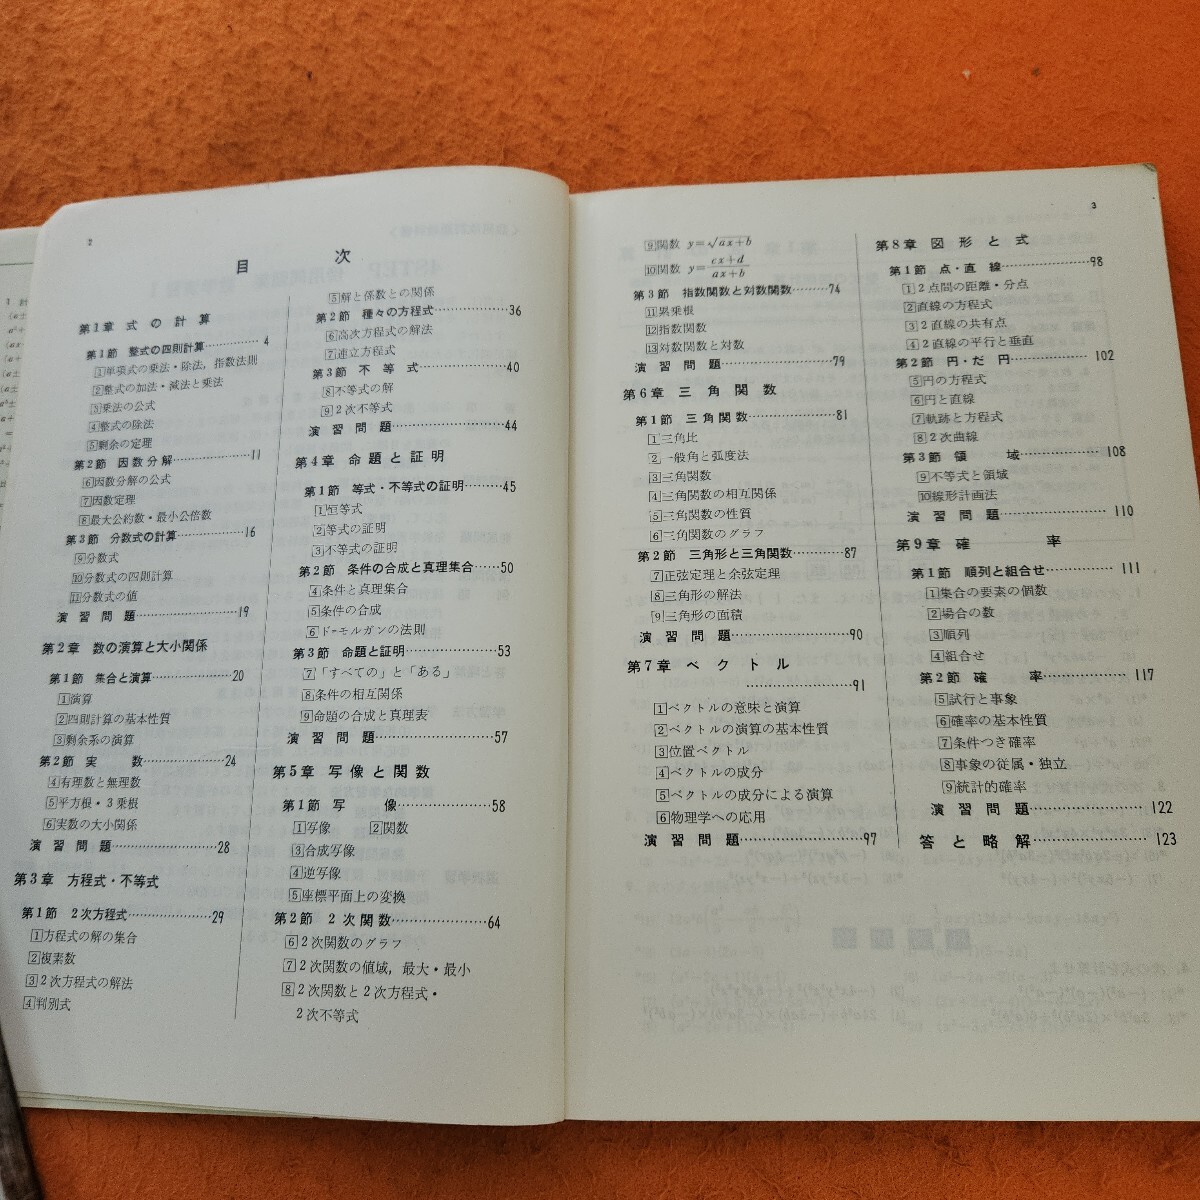 2
目 次
第1章 式の計算
第1節 整式の四則計算………4
1 単項式の乗法・除法，指数法則
2 整式の加法・減法と乗法
3 乗法の公式
4 整式の除法
5 剰余の定理
第2節 因数分解………11
6 因数分解の公式
7 因数定理
8 最大公約数・最小公倍数
第3節 分数式の計算………16
9 分数式
10 分数式の四則計算
11 分数式の値
演習問題………19
第2章 数の演算と大小関係
第1節 集合と演算………20
1 演算
2 四則計算の基本性質
3 剰余系の演算
第2節 実数………24
4 有理数と無理数
5 平方根・3乗根
6 実数の大小関係
演習問題………28
第3章 方程式・不等式
第1節 2次方程式………29
1 方程式の解の集合
2 複素数
3 2次方程式の解法
4 判別式
5 解と係数との関係
第2節 種々の方程式………36
6 高次方程式の解法
7 連立方程式
第3節 不等式………40
8 不等式の解
9 2次不等式
演習問題………44
第4章 命題と証明
第1節 等式・不等式の証明………45
1 恒等式
2 等式の証明
3 不等式の証明
第2節 条件の合成と真理集合………50
4 条件と真理集合
5 条件の合成
6 ド・モルガンの法則
第3節 命題と証明………53
7 「すべての」と「ある」
8 条件の相互関係
9 命題の合成と真理表
演習問題………57
第5章 写像と関数
第1節 写像………58
1 写像 2 関数
3 合成写像
4 逆写像
5 座標平面上の変換
第2節 2次関数………64
6 2次関数のグラフ
7 2次関数の値域，最大・最小
8 2次関数と2次方程式・
2次不等式
3
9 関数 y=√(ax+b)
10 関数 y=(cx+d)/(ax+b)
第3節 指数関数と対数関数………74
11 累乗根
12 指数関数
13 対数関数と対数
演習問題………79
第6章 三角関数
第1節 三角関数………81
1 三角比
2 一般角と弧度法
3 三角関数
4 三角関数の相互関係
5 三角関数の性質
6 三角関数のグラフ
第2節 三角形と三角関数………87
7 正弦定理と余弦定理
8 三角形の解法
9 三角形の面積
演習問題………90
第7章 ベクトル
………91
1 ベクトルの意味と演算
2 ベクトルの演算の基本性質
3 位置ベクトル
4 ベクトルの成分
5 ベクトルの成分による演算
6 物理学への応用
演習問題………97
第8章 図形と式
第1節 点・直線………98
1 2点間の距離・分点
2 直線の方程式
3 2直線の共有点
4 2直線の平行と垂直
第2節 円・だ円………102
5 円の方程式
6 円と直線
7 軌跡と方程式
8 2次曲線
第3節 領域………108
9 不等式と領域
10 線形計画法
演習問題………110
第9章 確率
第1節 順列と組合せ………111
1 集合の要素の個数
2 場合の数
3 順列
4 組合せ
第2節 確率………117
5 試行と事象
6 確率の基本性質
7 条件つき確率
8 事象の従属・独立
9 統計的確率
演習問題………122
答と略解………123